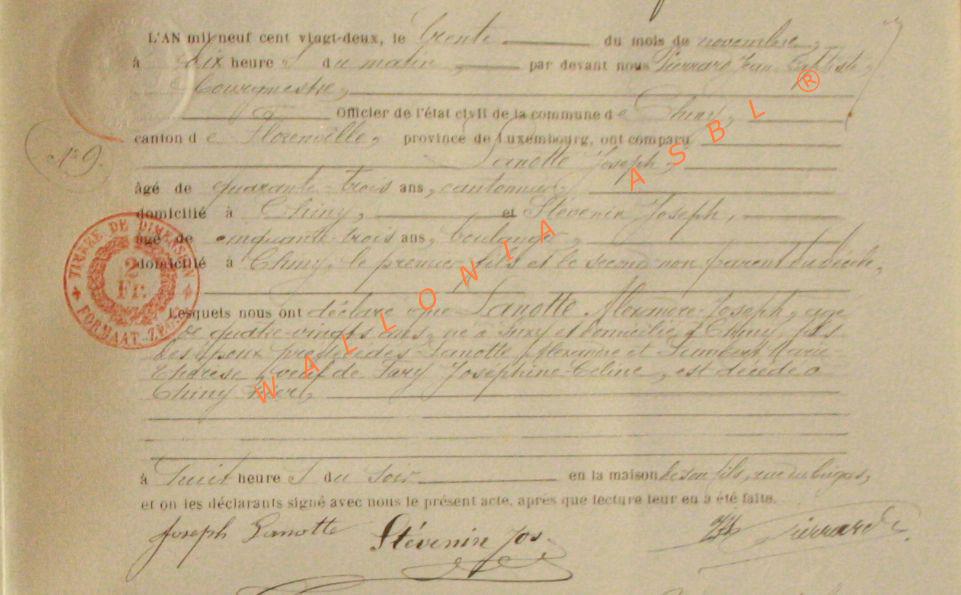 L'AN mil neuf cent vingt-deux, le trente du mois de novembre,
à dix heure s du matin, par devant nous Pierrard Jean Baptiste,
Bourgmestre,
Officier de l'état civil de la commune de Chiny,
canton de Florenville, province de Luxembourg, ont comparu
Lanotte Joseph,
N° 9.
âgé de quarante-trois ans, cantonnier,
domicilié à Chiny, et Stévenin Joseph,
âgé de cinquante-trois ans, boulanger,
domicilié à Chiny, le premier fils et le second non parent du décédé,
TIMBRE DE DIMENSION
2
Fr.
FORMAAT-ZEGEL
Lesquels nous ont déclaré que Lanotte Alexandre-Joseph, âgé
de quatre-vingts ans, né à Suxy et domicilié à Chiny, fils
des époux prédécédés Lanotte Alexandre et Lambert Marie
Thérèse, veuf de Jary Joséphine-Céline, est décédé à
Chiny hier,
à huit heure s du soir en la maison de son fils, rue du
et on les déclarants signé avec nous le présent acte, après que lecture leur en a été faite.
Joseph Lanotte Stévenin Jos. Pierrard
WALLONIA ASBL ®